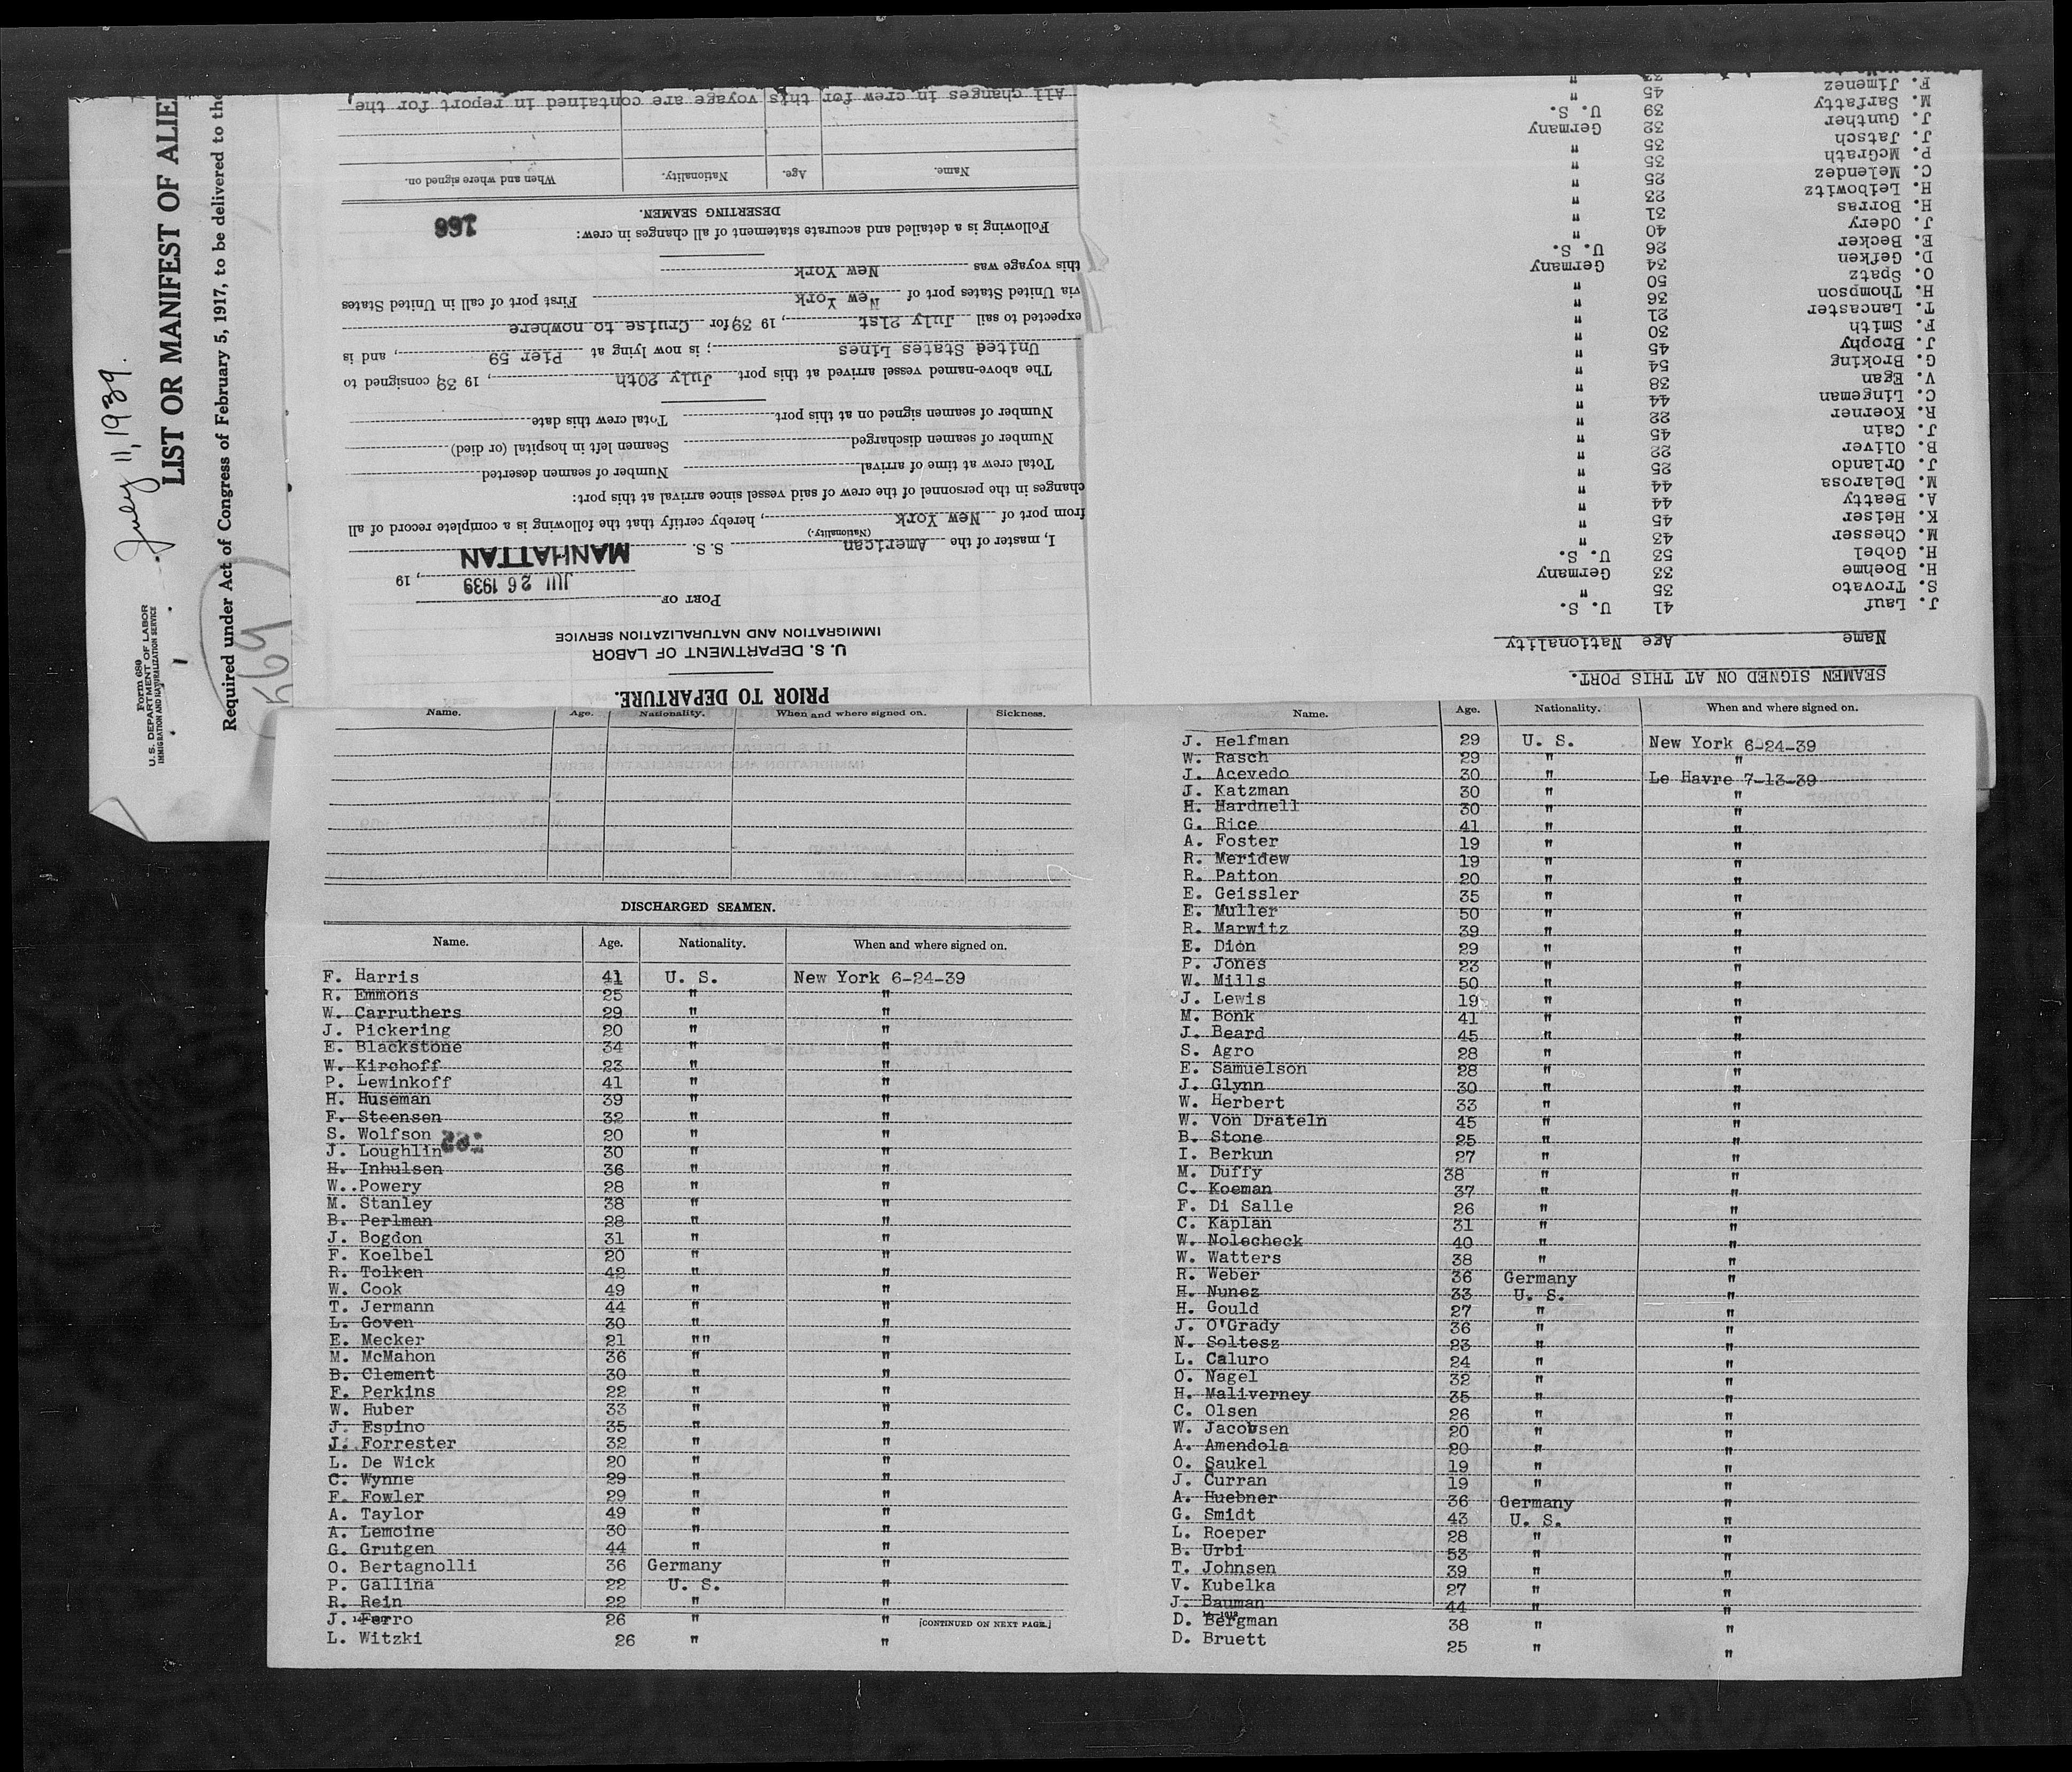 July 11, 1939.
Form 680
U.S. DEPARTMENT OF LABOR
IMMIGRATION AND NATURALIZATION SERVICE
1
LIST OR MANIFEST OF ALIE
Required under Act of Congress of February 5, 1917, to be delivered to the
PRIOR TO DEPARTURE.
U. S. DEPARTMENT OF LABOR
IMMIGRATION AND NATURALIZATION SERVICE
PORT OF
JUL 26 1939, 19
I, master of the American S. S. MANHATTAN
(Nationality.)
from port of New York, hereby certify that the following is a complete record of all
changes in the personnel of the crew of said vessel since arrival at this port:
Total crew at time of arrival Number of seamen deserted
Number of seamen discharged Seamen left in hospital (or died)
Number of seamen signed on at this port Total crew this date
The above-named vessel arrived at this port July 20th, 19 39, consigned to
United States Lines; is now lying at Pier 59, and is
expected to sail July 21st, 19 39 for Cruise to nowhere
via United States port of New York First port of call in United States
this voyage was New York
Following is a detailed and accurate statement of all changes in crew:
166
DESERTING SEAMEN.
Name. Age. Nationality. When and where signed on.
All changes in crew for this voyage are contained in report for the
SEAMEN SIGNED ON AT THIS PORT.
Name Age Nationality
J. Lauf 41 U. S.
S. Trovato 35 "
H. Boehme 33 Germany
H. Gobel 53 U. S.
M. Chesser 43 "
K. Heiser 45 "
A. Beatty 44 "
M. Delarosa 44 "
J. Orlando 25 "
B. Oliver 22 "
J. Cain 45 "
R. Koerner 22 "
C. Lingeman 44 "
V. Egan 38 "
G. Broking 54 "
J. Brophy 45 "
F. Smith 30 "
T. Lancaster 21 "
H. Thompson 36 "
O. Spatz 50 "
D. Gefken 34 Germany
E. Becker 26 U. S.
J. Odery 40 "
H. Borras 31 "
H. Leibowitz 23 "
C. Melendez 25 "
P. McGrath 35 "
J. Jatsch 35 "
J. Gunther 32 Germany
M. Sarfatty 39 U. S.
F. Jimenez 45 "
Name. Age. Nationality. When and where signed on. Sickness.
DISCHARGED SEAMEN.
Name. Age. Nationality. When and where signed on.
F. Harris 41 U. S. New York 6-24-39
R. Emmons 25 " "
W. Carruthers 29 " "
J. Pickering 20 " "
E. Blackstone 34 " "
W. Kirchoff 23 " "
P. Lewinkoff 41 " "
H. Huseman 39 " "
F. Steensen 32 " "
S. Wolfson 20 " "
J. Loughlin 30 " "
H. Inhulsen 36 " "
W..Powery 28 " "
M. Stanley 38 " "
B. Perlman 28 " "
J. Bogdon 31 " "
F. Koelbel 20 " "
R. Tolken 42 " "
W. Cook 49 " "
T. Jermann 44 " "
L. Goven 30 " "
E. Mecker 21 "" "
M. McMahon 36 " "
B. Clement 30 " "
F. Perkins 22 " "
W. Huber 33 " "
J. Espino 35 " "
J. Forrester 32 " "
L. De Wick 20 " "
C. Wynne 29 " "
F. Fowler 29 " "
A. Taylor 49 " "
A. Lemoine 30 " "
G. Grutgen 44 " "
O. Bertagnolli 36 Germany "
P. Gallina 22 U. S. "
R. Rein 22 " "
J. Ferro 26 " "
[CONTINUED ON NEXT PAGE.]
L. Witzki 26 " "
Name. Age. Nationality. When and where signed on.
J. Helfman 29 U. S. New York 6-24-39
W. Rasch 29 " "
J. Acevedo 30 " Le Havre 7-13-39
J. Katzman 30 " "
H. Hardnell 30 " "
G. Rice 41 " "
A. Foster 19 " "
R. Meridew 19 " "
R. Patton 20 " "
E. Geissler 35 " "
E. Muller 50 " "
R. Marwitz 39 " "
E. Dion 29 " "
P. Jones 23 " "
W. Mills 50 " "
J. Lewis 19 " "
M. Bonk 41 " "
J. Beard 45 " "
S. Agro 28 " "
E. Samuelson 28 " "
J. Glynn 30 " "
W. Herbert 33 " "
W. Von Drateln 45 " "
B. Stone 25 " "
I. Berkun 27 " "
M. Duffy 38 " "
C. Koeman 37 " "
F. Di Salle 26 " "
C. Kaplan 31 " "
W. Nolecheck 40 " "
W. Watters 38 " "
R. Weber 36 Germany "
H. Nunez 33 U. S. "
H. Gould 27 " "
J. O'Grady 36 " "
N. Soltesz 23 " "
L. Caluro 24 " "
O. Nagel 32 " "
H. Maliverney 35 " "
C. Olsen 26 " "
W. Jacobsen 20 " "
A. Amendola 20 " "
O. Saukel 19 " "
J. Curran 19 " "
A. Huebner 36 Germany "
G. Smidt 43 U. S. "
L. Roeper 28 " "
B. Urbi 53 " "
T. Johnsen 39 " "
V. Kubelka 27 " "
J. Bauman 44 " "
D. Bergman 38 " "
D. Bruett 25 " "